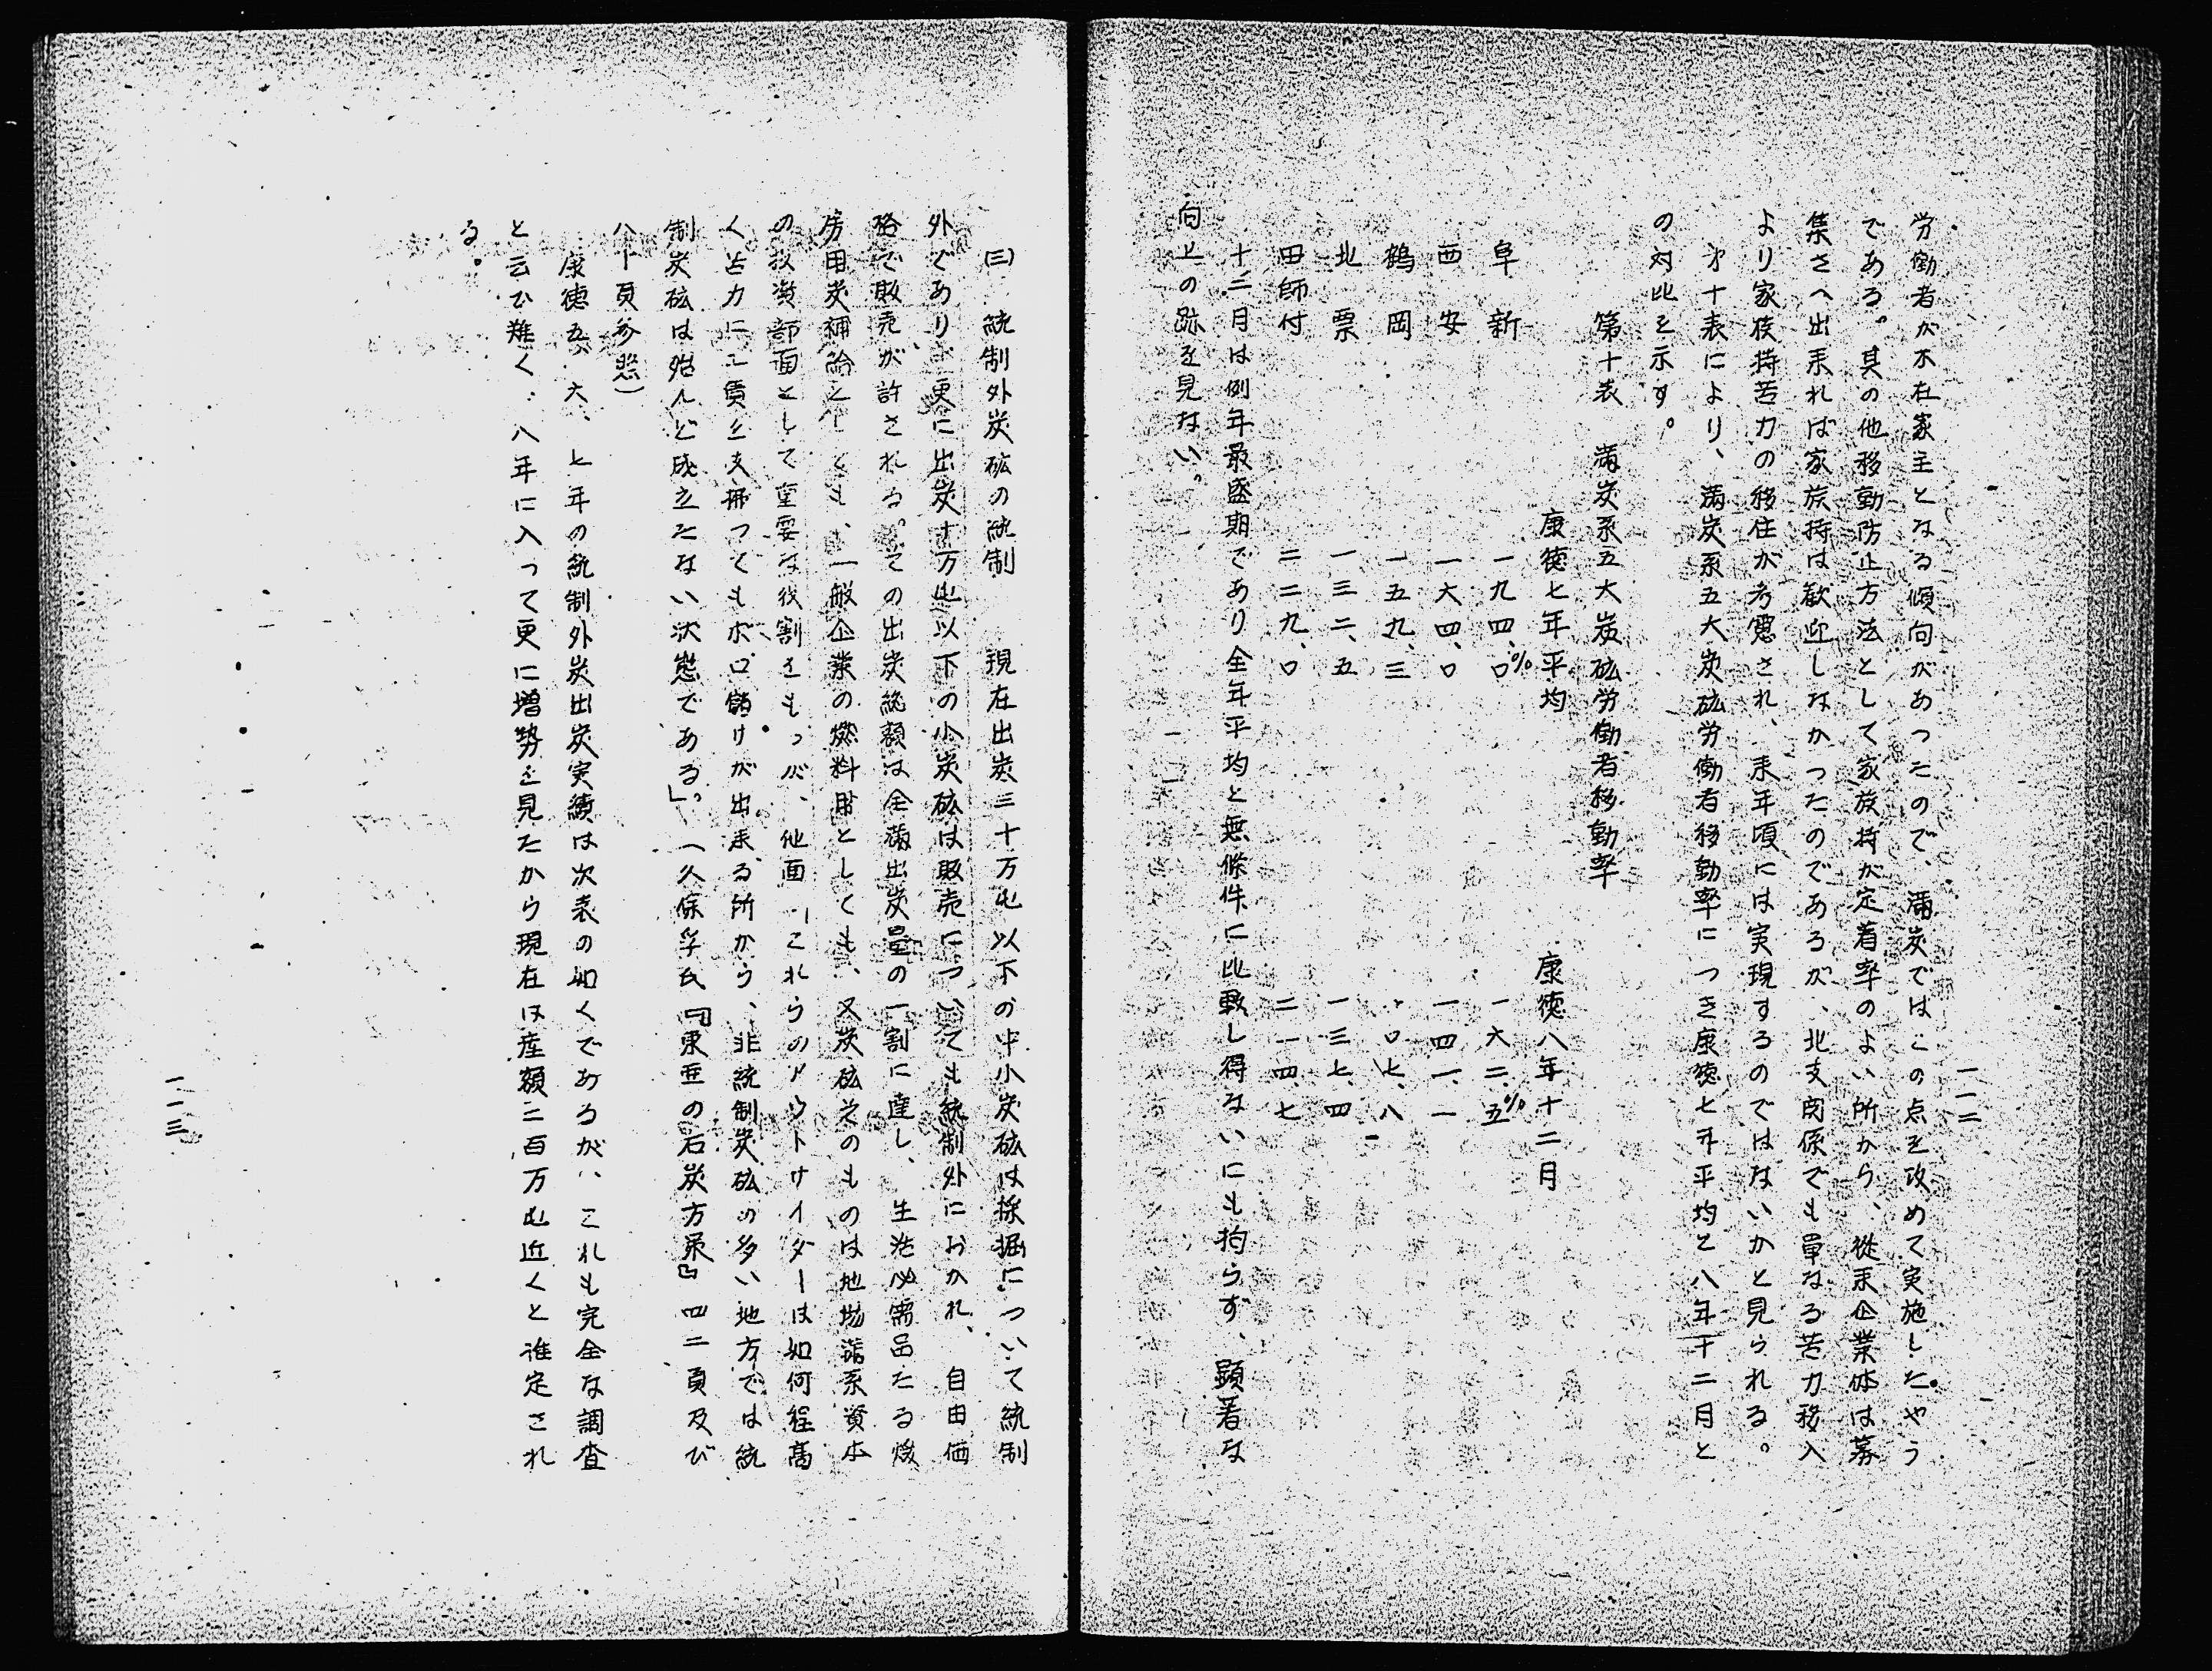 一一二
労働者が不在家主となる傾向があつたので、満炭ではこの点を改めて実施したやう
である。其の他移動防止方法として家族持が定着率のよい所から、従来企業体は募
集さへ出来れば家族持は歓迎しなかつたのであるが、北支関係でも単なる苦力移入
より家族持苦力の移住が考慮され、来年頃には実現するのではないかと見られる。
才十表により、満炭系五大炭砿労働者移動率につき康徳七年平均と八年十二月と
の対比を示す。
第十表　満炭系五大炭砿労働者移動率
康徳七年平均　康徳八年十二月
阜新　一九四、〇%　一六二、五%
西安　一六四、〇　一四一、一
鶴岡　一五九、三　一〇七、八
北票　一三二、五　一三七、四
田師付　二二九、〇　二一四、七
十二月は例年最盛期であり全年平均と無條件に比較し得ないにも拘らず、顕著な
向上の跡を見ない。
(三)　統制外炭砿の統制　現在出炭三十万屯以下の中小炭砿は採掘について統制
外であり、更に出炭十万屯以下の小炭砿は販売についても統制外におかれ、自由価
格で販売が許される。その出炭総額は全満出炭量の一割に達し、生活必需品たる煖
房用炭補給としても、一般企業の燃料用としても、又炭砿そのものは地場満系資本
の投資部面として重要な役割をもつが、他面「これらのアウトサイダーは如何程高
く苦力に工賃を支拂つてもボロ儲けが出来る所から、非統制炭砿の多い地方では統
制炭砿は殆んど成立たない状態である」。（久保孚氏『東亜の石炭方策』四二頁及び
八十頁参照）
康徳五、六、七年の統制外炭出炭実績は次表の如くであるが、これも完全な調査
と云ひ難く、八年に入って更に増勢を見たから現在は産額二百万屯近くと推定され
る。
一一三